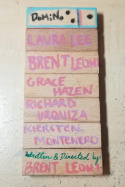 DOMINO
LAURA LEE
BRENT LEON
GRACE
HAZEN
RICHARD
URQUIZA
KIERSTEN
MONTENERO
Written & Directed by:
BRENT LEON